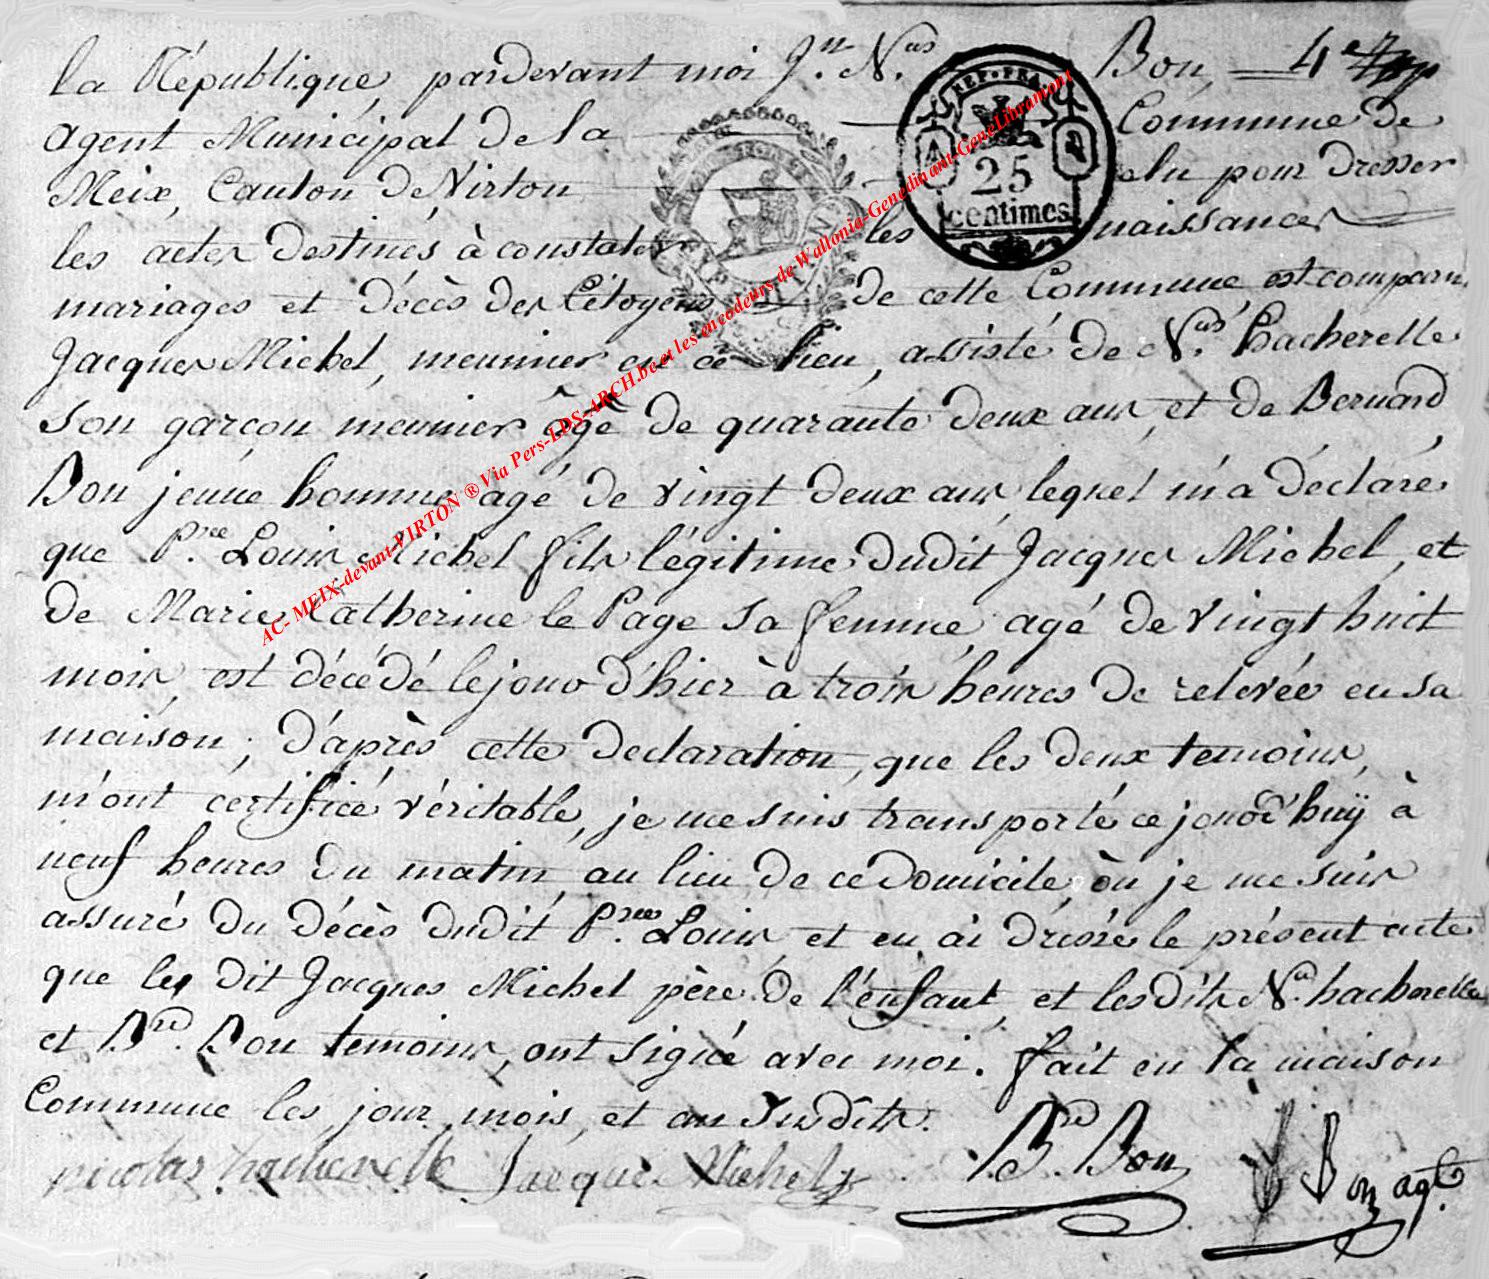 la République, pardevant moi Jn. Nas. Bon 4e
agent Municipal de la Commune de
Meix, Canton de Virton elu pour dresser
les actes destinés à constater les naissances
mariages et décès des Citoyens de cette Commune est comparu
Jacques Michel, meunier en ce lieu, assisté de Nas. hacherelle
son garçon meunier âgé de quarante deux ans, et de Bernard
Bon jeune homme agé de vingt deux ans, lequel m'a déclaré
que Prre. Louis Michel fils légitime dudit Jacques Michel, et
de Marie Catherine le Page sa femme agé de vingt huit
mois, est décédé le jour d'hier à trois heures de relevée en sa
maison; d'après cette declaration, que les deux temoins,
m'ont certifié véritable, je me suis transporté ce jourd'huÿ à
neuf heures du matin, au lieu de ce domicile, où je me suis
assuré du décès dudit Prre. Louis, et en ai dréssé le présent acte
que les dit Jacques Michel père de l'enfant, et lesdits Nas. hacherelle
et Brd. Bon temoins, ont signé avec moi. fait en la maison
Commune les jour, mois, et an susdits.
nicolas hacherelle Jacque Michel Brd. Bon Bon agt.
REP. FRA.
25
centimes
AC- MEIX-devant-VIRTON ® Via Pers-LDS-ARCH.be et les encodeurs de Wallonia-Genedinant-GeneLibramont